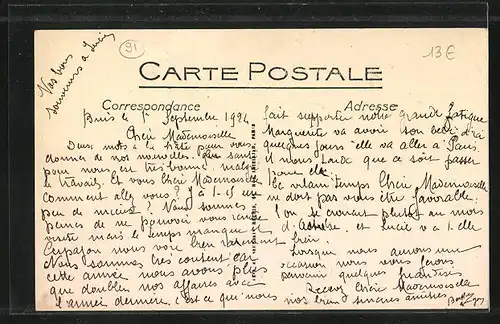 Nos bons
souvenirs à Lucie
91
13€
CARTE POSTALE
Correspondance
Adresse
Paris le 1r Septembre 1924
Chère Mademoiselle
Deux mots à la hâte pour vous
donner de nos nouvelles. La santé
pour nous est très bonne, malgré
le travail. Et vous Chère Mademoiselle
Comment allez vous? Y a t-il un
peu de mieux? Nous sommes
peinés de ne pouvoir vous rendre
visite mais le temps manque et
nous voir bien rarement
Nous sommes très content car
cette année nous avons plus
que doubler nos affaires avec
l'année dernière. c'est ce qui nous
fait supporter notre grande fatigue
Marguerite va avoir son bébé d'ici
quelques jours elle va aller à Paris
il nous tarde que ce soit passer
pour elle.
Le vilain temps Chère Mademoiselle
ne doit pas vous être favorable.
l'on se croirait plutôt au mois
et Lucie va t-elle
bien.
Lorsque nous aurons une
occasion nous vous ferons
parvenir quelques friandises
Recevez Chère Mademoiselle
nos bons sincères amitiés